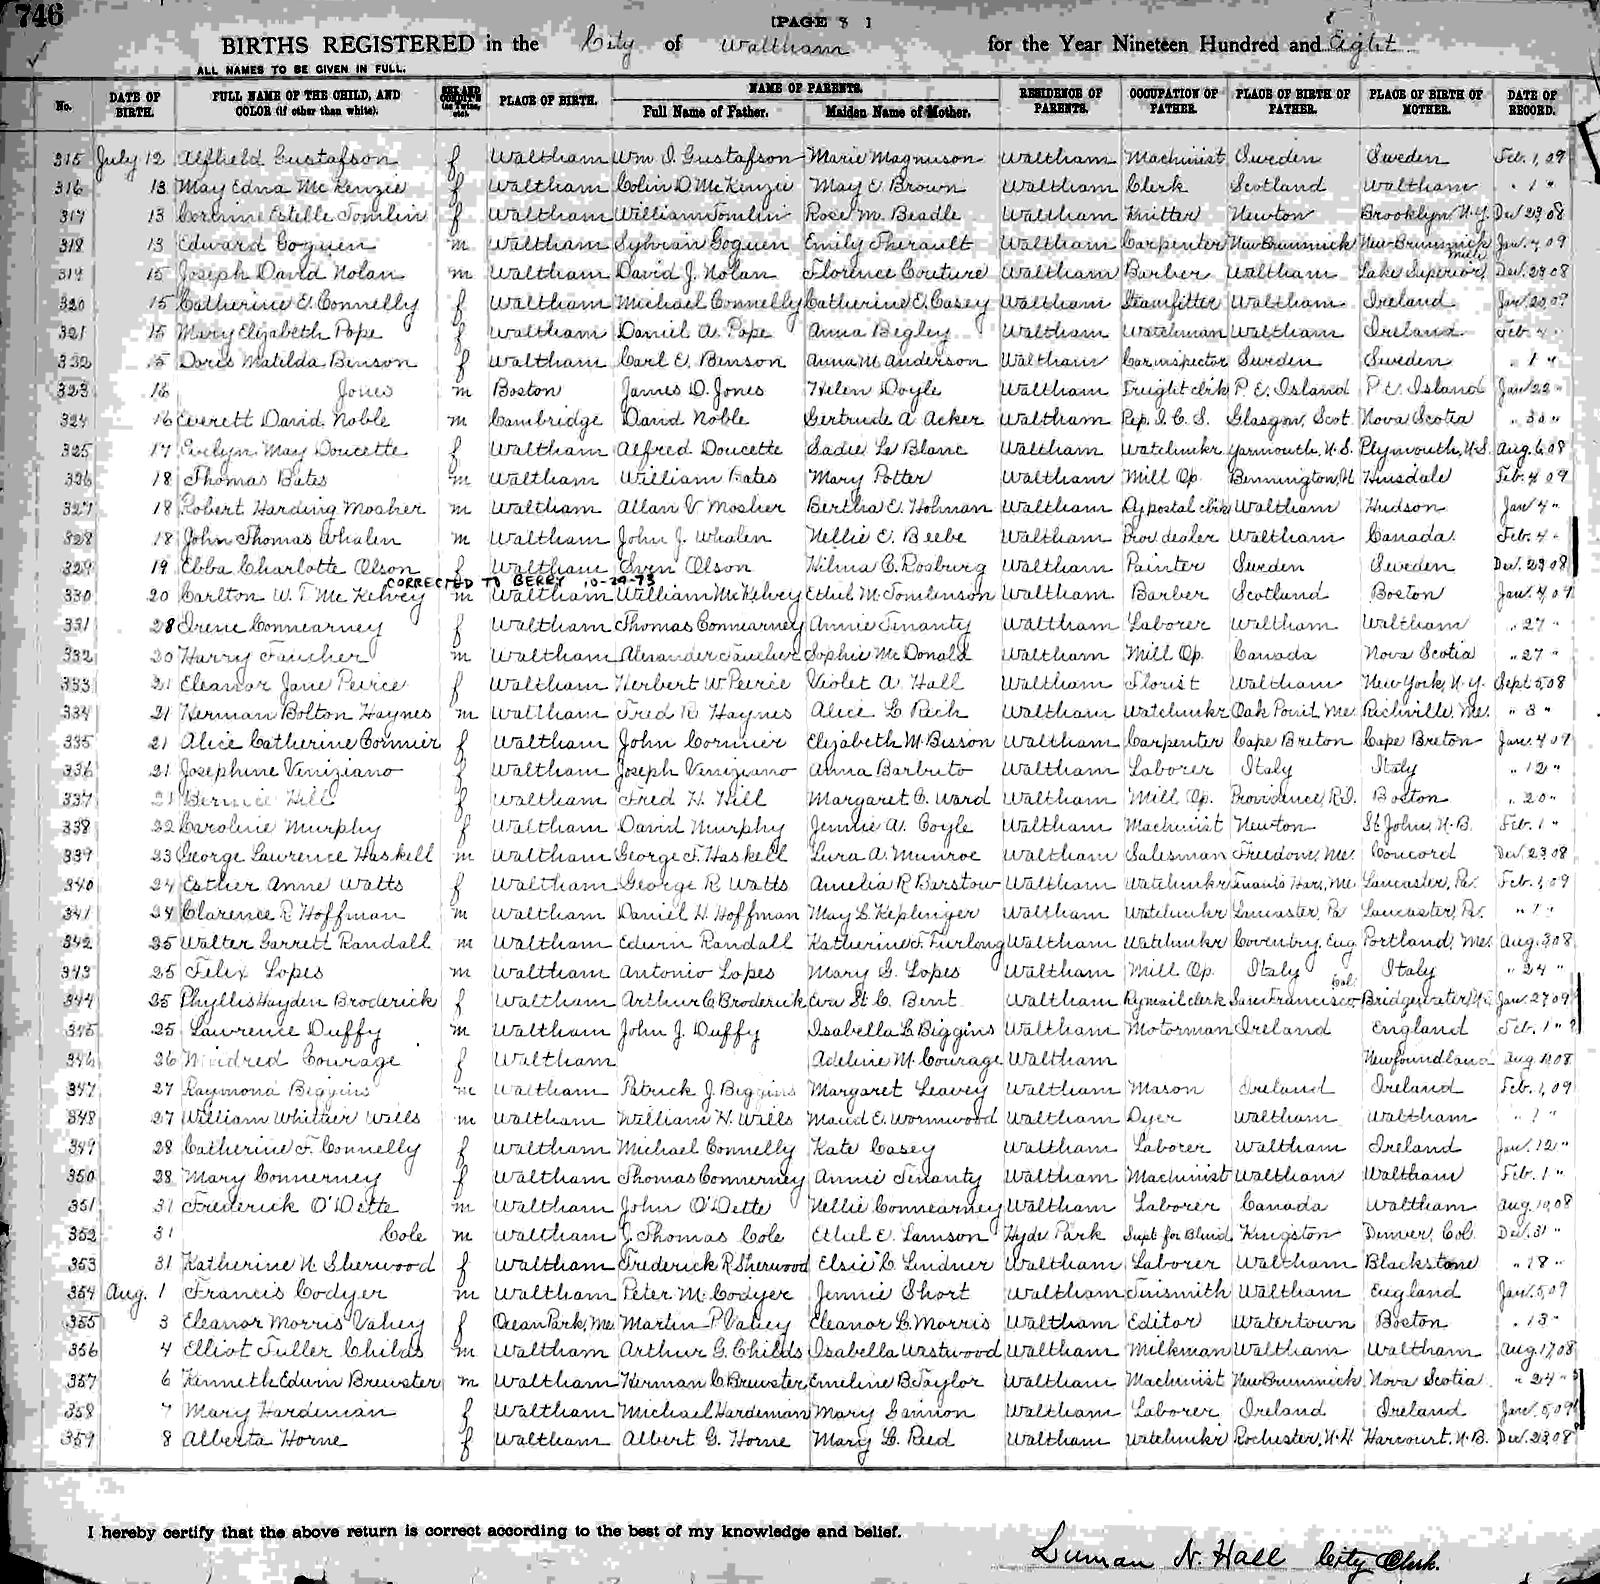 746
[PAGE 3 1 ]
BIRTHS REGISTERED in the City of Waltham for the Year Nineteen Hundred and Eight
ALL NAMES TO BE GIVEN IN FULL.
No. DATE OF BIRTH. FULL NAME OF THE CHILD, AND COLOR (if other than white). SEX AND CONDIT'N (as Twins, etc.) PLACE OF BIRTH. NAME OF PARENTS. Full Name of Father. Maiden Name of Mother. RESIDENCE OF PARENTS. OCCUPATION OF FATHER. PLACE OF BIRTH OF FATHER. PLACE OF BIRTH OF MOTHER. DATE OF RECORD.
315 July 12 Alfhield Gustafson f Waltham Wm I. Gustafson Marie Magnuson Waltham Machinist Sweden Sweden Feb. 1, 09
316 13 May Edna McKenzie f Waltham Colin D McKenzie May E. Brown Waltham Clerk Scotland Waltham " 1 "
317 13 Corinne Estelle Tomlin f Waltham William Tomlin Rose M. Beadle Waltham Knitter Newton Brooklyn N.Y. Dec 23, 08
318 13 Edward Goguen m Waltham Sylvian Goguen Emily Therault Waltham Carpenter New Brunswick New Brunswick Jan. 4, 09
319 15 Joseph David Nolan m Waltham David J. Nolan Florence Couture Waltham Barber Waltham Lake Superior, Mich Dec. 23 08
320 15 Catherine E. Connelly f Waltham Michael Connelly Catherine E. Casey Waltham Steamfitter Waltham Ireland Jan. 20, 09
321 15 Mary Elizabeth Pope f Waltham Daniel A. Pope Anna Begley Waltham Watchman Waltham Ireland Feb. 4 "
322 15 Doris Matilda Benson f Waltham Carl E. Benson Anna M. Anderson Waltham Car inspector Sweden Sweden " 1 "
323 16 Jones m Boston James D. Jones Helen Doyle Waltham Freight clrk P. E. Island P. E. Island Jan 22 "
324 16 Everett David Noble m Cambridge David Noble Gertrude A Acker Waltham Rep. I. C. S. Glasgow, Scot. Nova Scotia " 30 "
325 17 Evelyn May Doucette f Waltham Alfred Doucette Sadie Le Blanc Waltham Watchmkr Yarmouth, N.S. Plymouth, N.S. Aug. 6, 08
326 18 Thomas Bates m Waltham William Bates Mary Potter Waltham Mill Op. Bennington, Hinsdale Feb. 4 09
327 18 Robert Harding Mosher m Waltham Allan V Mosher Bertha E. Holman Waltham Ry postal clrk Waltham Hudson Jan 4 "
328 18 John Thomas Whalen m Waltham John J. Whalen Nellie E. Beebe Waltham Prov. dealer Waltham Canada Feb. 4 "
329 19 Ebba Charlotte Olson f Waltham Sven Olson Hilma C. Rosburg Waltham Painter Sweden Sweden Dec. 23 08
CORRECTED TO BERRY 10-29-73
330 20 Carlton W. T. McKelvey m Waltham William McKelvey Ethel M. Tomlinson Waltham Barber Scotland Boston Jan. 4, 09
331 28 Irene Connearney f Waltham Thomas Connearney Annie Tenanty Waltham Laborer Waltham Waltham " 27 "
332 20 Harry Faucher m Waltham Alexander Faucher Sophie McDonald Waltham Mill Op. Canada Nova Scotia " 27 "
333 21 Eleanor Jane Peirce f Waltham Herbert W. Peirce Violet A. Hall Waltham Florist Waltham New York, N.Y. Sept 5, 08
334 21 Herman Bolton Haynes m Waltham Fred R Haynes Alice L Rich Waltham Watchmkr Oak Point, Me. Richville, Me. " 3 "
335 21 Alice Catherine Cormier f Waltham John Cormier Elizabeth M. Bisson Waltham Carpenter Cape Breton Cape Breton Jan. 4 09
336 21 Josephine Veniziano f Waltham Joseph Veniziano Anna Barbuto Waltham Laborer Italy Italy " 12 "
337 21 Bernice Hill f Waltham Fred H. Hill Margaret C. Ward Waltham Mill Op. Providence, R.I. Boston " 20 "
338 22 Caroline Murphy f Waltham David Murphy Jennie A. Coyle Waltham Machinist Newton St John, N.B. Feb. 1 "
339 23 George Lawrence Haskell m Waltham George F. Haskell Lura A. Munroe Waltham Salesman Freedom, Me. Concord Dec. 23, 08
340 24 Esther Anne Watts f Waltham George R Watts Amelia R Barstow Waltham Watchmkr Tenants Har., Me Lancaster, Pa. Feb. 1, 09
341 24 Clarence R Hoffman m Waltham Daniel H. Hoffman May L. Keplinger Waltham Watchmkr Lancaster, Pa Lancaster, Pa. " 1 "
342 25 Walter Garrett Randall m Waltham Edwin Randall Katherine F. Furlong Waltham Watchmkr Coventry, Eng Portland, Me. Aug. 3, 08
343 25 Felix Lopes m Waltham Antonio Lopes Mary G. Lopes Waltham Mill Op. Italy Italy " 24 "
344 25 Phyllis Hayden Broderick f Waltham Arthur C. Broderick Eva St. C. Bent Waltham Ry mail clerk San Francisco, Cal. Bridgewater, N.S. Jan. 27, 09
345 25 Lawrence Duffy m Waltham John J. Duffy Isabella C Biggins Waltham Motorman Ireland England Feb. 1 "
346 26 Mildred Courage f Waltham Adeline M. Courage Waltham Newfoundland Aug. 10, 08
347 27 Raymond Biggins m Waltham Patrick J. Biggins Margaret Leavey Waltham Mason Ireland Ireland Feb. 1, 09
348 27 William Whittier Wells m Waltham William H. Wells Maud E. Wormwood Waltham Dyer Waltham Waltham " 1 "
349 28 Catherine F. Connelly f Waltham Michael Connelly Kate Casey Waltham Laborer Waltham Ireland Jan. 12 "
350 28 Mary Connerney f Waltham Thomas Connerney Annie Tenanty Waltham Machinist Waltham Waltham Feb. 1 "
351 31 Frederick O'Dette m Waltham John O'Dette Nellie Connearney Waltham Laborer Canada Waltham Aug. 10, 08
352 31 Cole m Waltham J. Thomas Cole Ethel E. Lamson Hyde Park Supt for Blind Kingston Denver, Col. Dec. 31 "
353 31 Katherine N. Sherwood f Waltham Frederick R. Sherwood Elsie C. Lindner Waltham Laborer Waltham Blackstone " 18 "
354 Aug. 1 Francis Codyer m Waltham Peter M. Codyer Jennie Short Waltham Tinsmith Waltham England Jan. 5, 09
355 3 Eleanor Morris Vahey f Ocean Park, Me. Martin P. Vahey Eleanor L. Morris Waltham Editor Watertown Boston " 13 "
356 4 Elliot Fuller Childs m Waltham Arthur G. Childs Isabella Westwood Waltham Milkman Waltham Waltham Aug. 17, 08
357 6 Kenneth Edwin Brewster m Waltham Herman C. Brewster Emeline B. Taylor Waltham Machinist New Brunswick Nova Scotia " 24 "
358 7 Mary Hardeman f Waltham Michael Hardeman Mary Gannon Waltham Laborer Ireland Ireland Jan. 5, 09
359 8 Alberta Horne f Waltham Albert G. Horne Mary L. Reed Waltham Watchmkr Rochester, N.H. Harcourt, N.B. Dec. 23, 08
I hereby certify that the above return is correct according to the best of my knowledge and belief.
Luman N. Hall City Clerk.